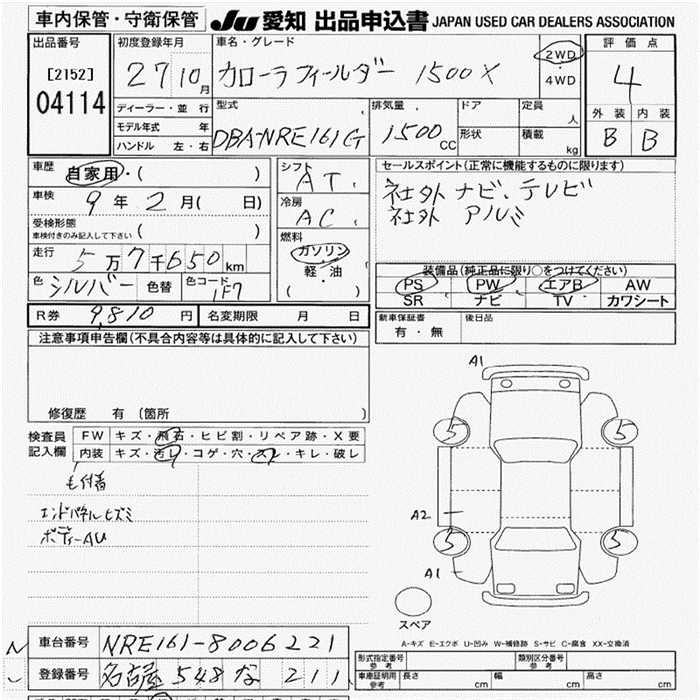 車内保管・守衛保管 JU 愛知 出品申込書 JAPAN USED CAR DEALERS ASSOCIATION
出品番号 初度登録年月 車名・グレード 評価点
[2152] 27 10月 カローラフィールダー 1500 X 2WD・4WD 4
04114 ディーラー・並行 型式 排気量 ドア 定員 人 外装 内装
モデル年式 年 DBA-NRE161G 1500 CC 形状 積載 kg B B
ハンドル 左・右
車歴 自家用・( ) シフト AT セールスポイント(正常に機能するものに限ります)
車検 9年2月( 日) 冷房 AC 社外 ナビ、テレビ
受検形態 ( ) 社外 アルミ
車検付きのみ記入して下さい
燃料 ガソリン・軽・油 ( )
走行 5万7千650km 装備品(純正品に限り○をつけてください)
色 シルバー 色替 色コード 1F7 PS PW エアB AW
SR ナビ TV カワシート
R券 9,810円 名変期限 月 日 新車保証書 有・無 後日品
注意事項申告欄(不具合内容等は具体的に記入して下さい)
修復歴 有 (箇所 )
検査員記入欄 FW キズ・飛石・ヒビ割・リペア跡・X要
内装 キズ・汚レ・コゲ・穴・スレ・キレ・破レ
も付着
エンドパネルヒズミ
ボディーAU
A1
5 5
A2
5 5
A1
スペア
A-キズ E-エクボ U-凹み W-補修跡 S-サビ C-腐食 XX-交換済
車台番号 NRE161-8006221 型式指定番号 参考 類別区分番号 参考
登録番号 名古屋 548 な 211 車庫証明用 参考 長さ cm 幅 cm 高さ cm